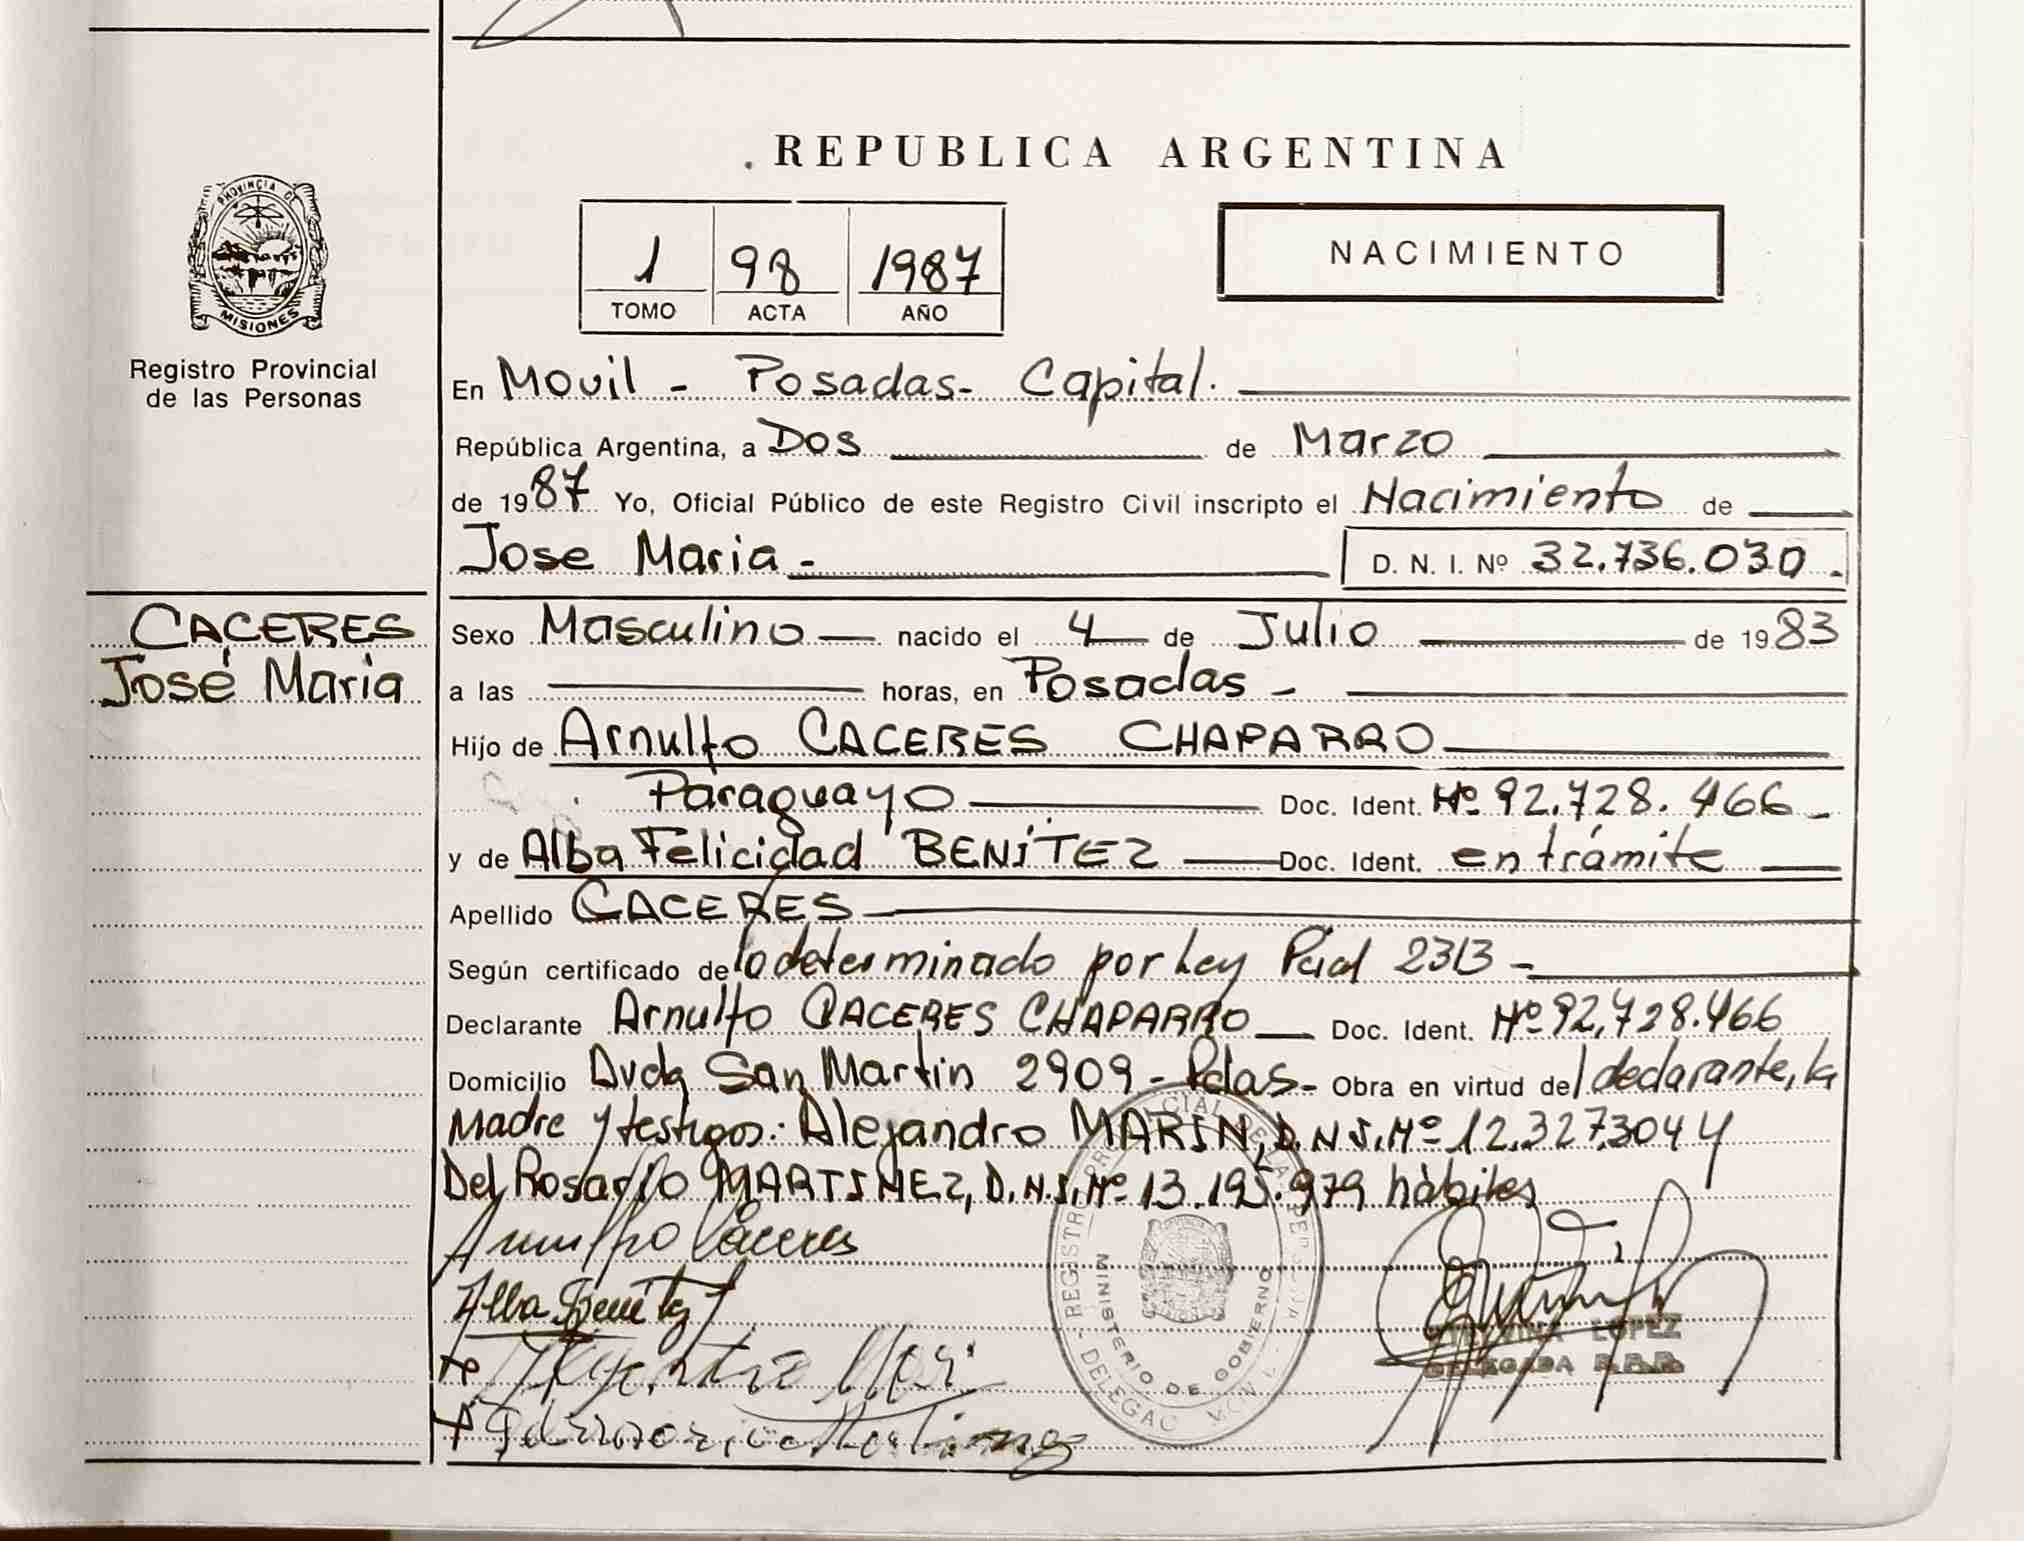 REPUBLICA ARGENTINA
1 98 1987
TOMO ACTA AÑO
NACIMIENTO
PROVINCIA DE
MISIONES
Registro Provincial
de las Personas
CACERES
José Maria
En Movil - Posadas - Capital.
República Argentina, a Dos de Marzo
de 1987 Yo, Oficial Público de este Registro Civil inscripto el Nacimiento de
Jose Maria - D. N. I. Nº 32.736.030.
Sexo Masculino nacido el 4 de Julio de 1983
a las horas, en Posadas -
Hijo de Arnulfo CACERES CHAPARRO
Paraguayo Doc. Ident. Nº 92.728.466 -
y de Alba Felicidad BENíTEZ Doc. Ident. en trámite
Apellido CACERES
Según certificado de lo determinado por Ley Pcial 2313 -
Declarante Arnulfo CACERES CHAPARRO Doc. Ident. Nº 92.728.466
Domicilio Avda San Martin 2909 - Pdas - Obra en virtud del declarante, la
Madre y testigos: Alejandro MARIN, D.N.I. Nº 12.327.304 y
Del Rosario MARTINEZ, D.N.I. Nº 13.195.979 hábiles
Arnulfo Cáceres
Alba Benítez
REGISTRO PROVINCIAL DE LAS PERSONAS
MINISTERIO DE GOBIERNO
LOPEZ
DELEGADA